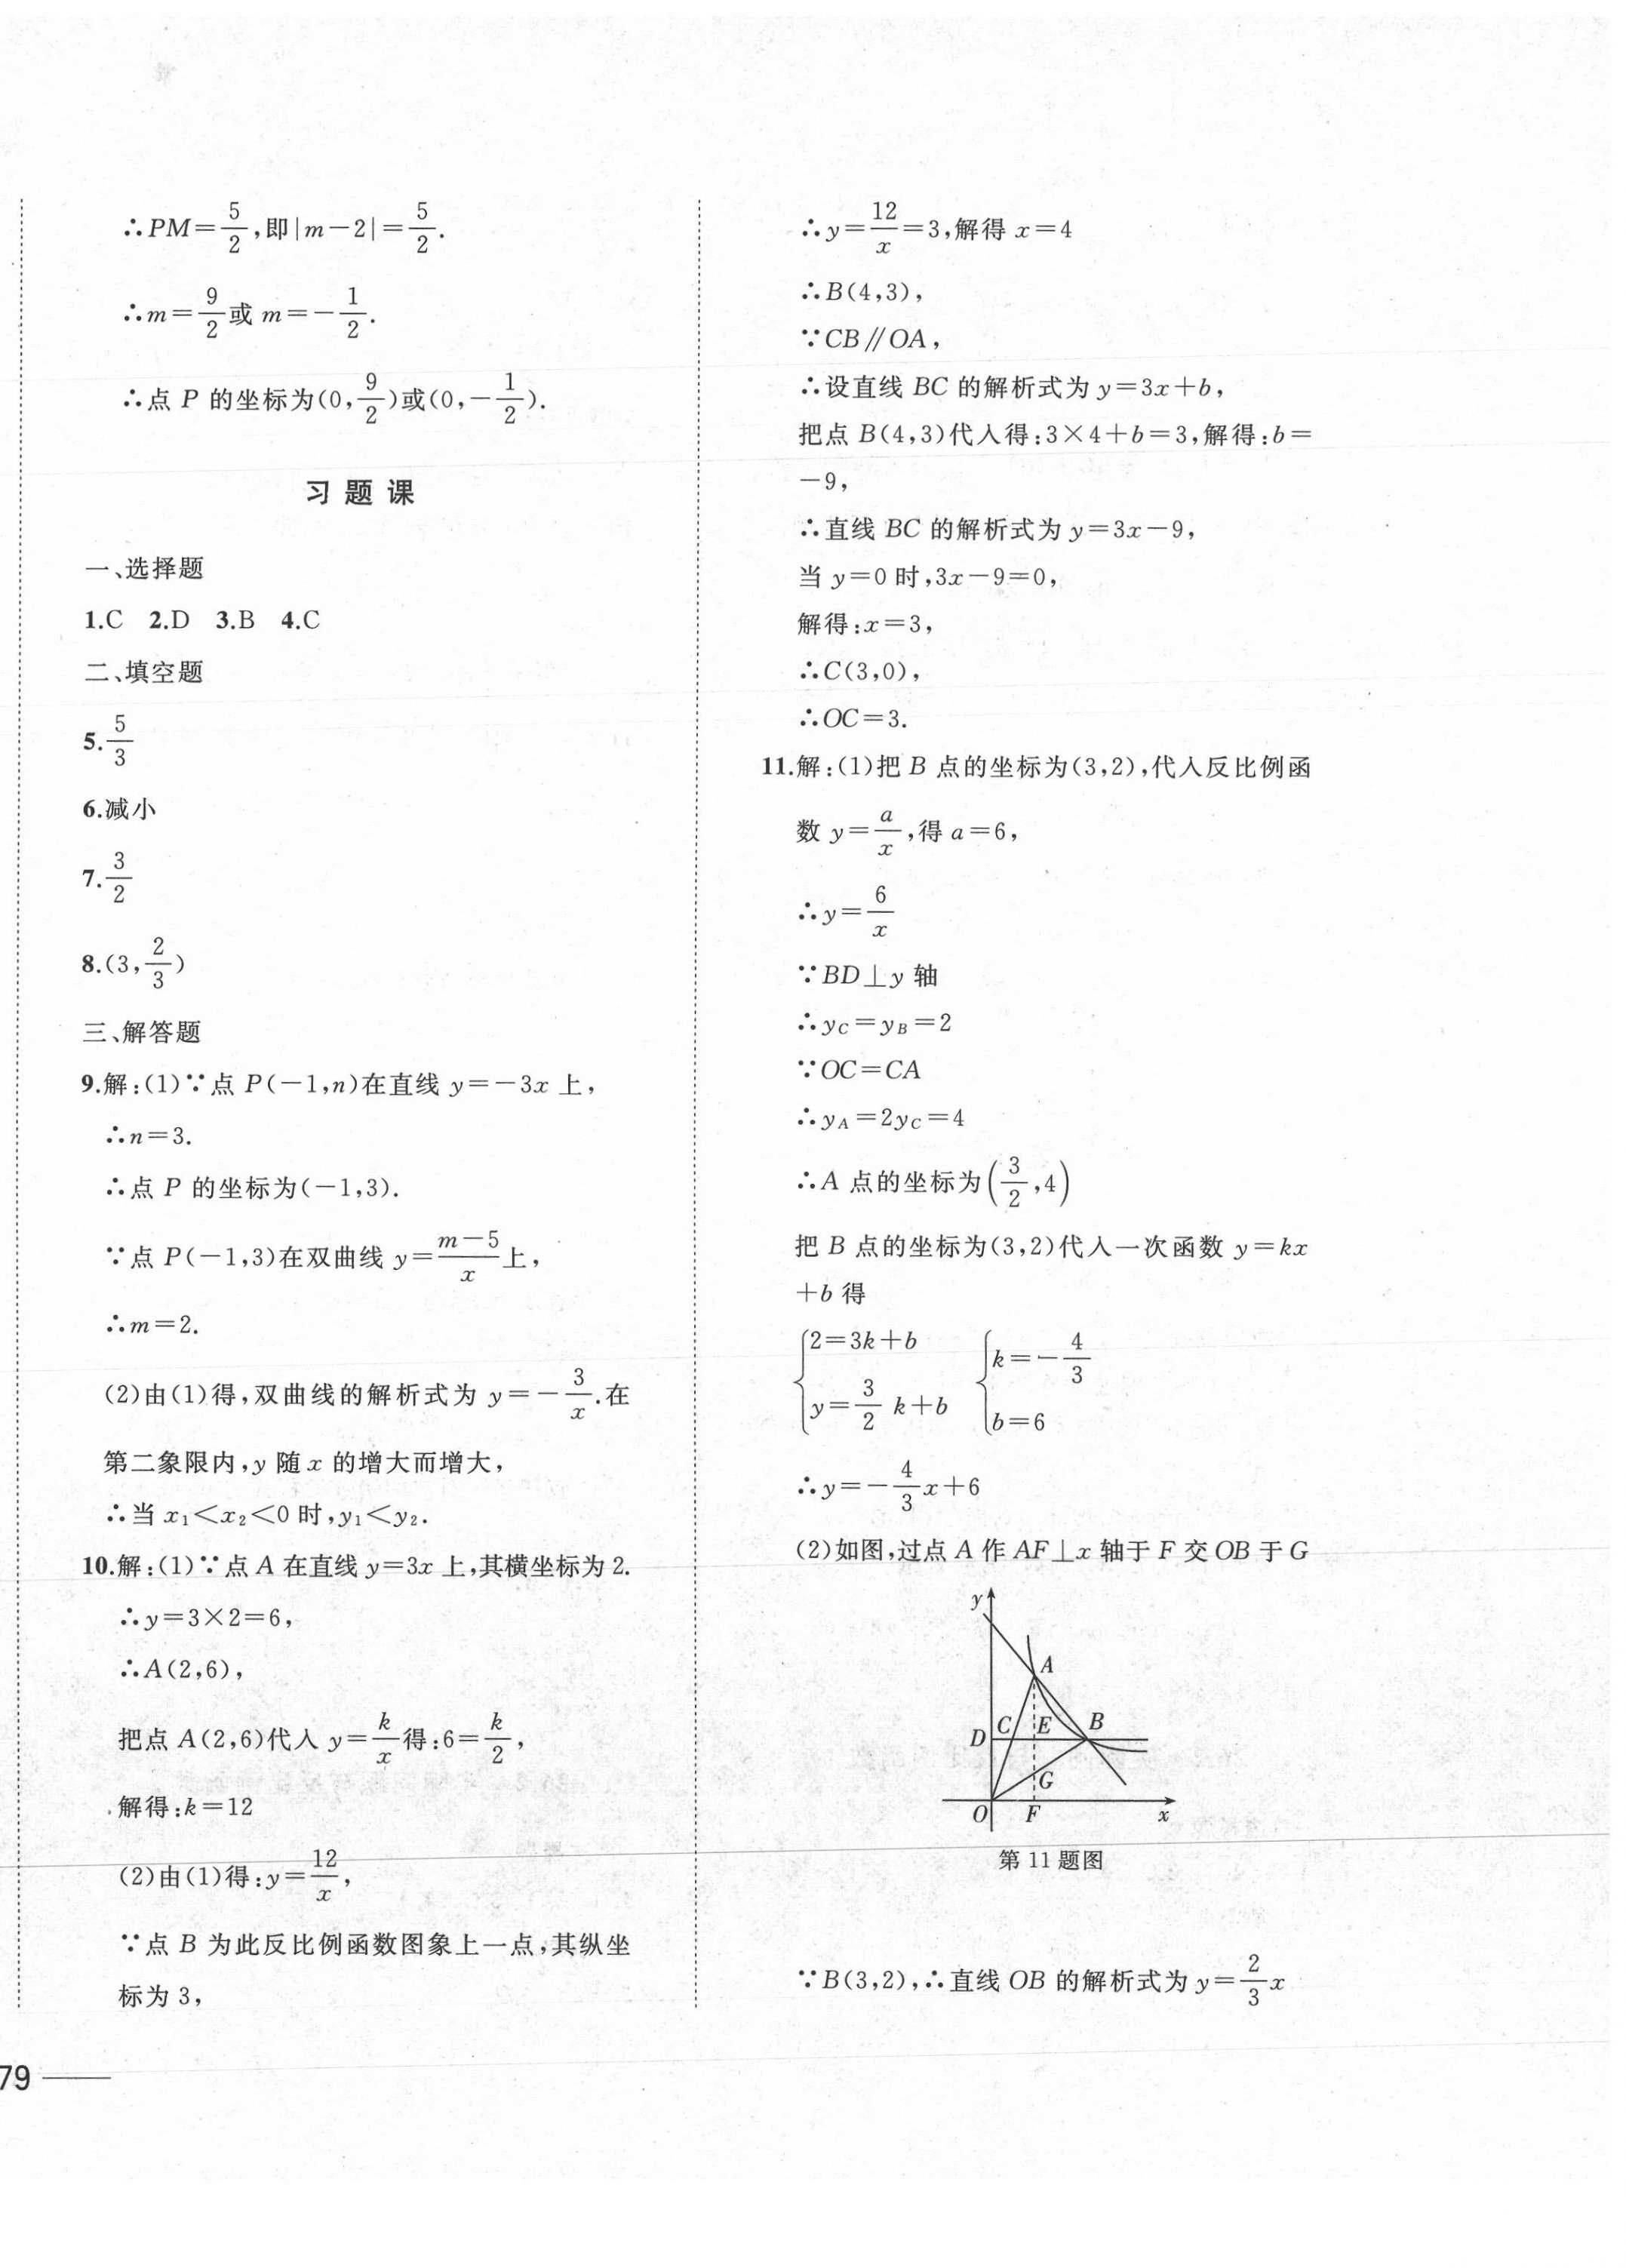 ∴PM=5/2,即|m-2|=5/2.
∴m=9/2或 m=-1/2.
∴点 P 的坐标为(0,9/2)或(0,-1/2).
习题课
一、选择题
1.C 2.D 3.B 4.C
二、填空题
5.5/3
6.减小
7.3/2
8.(3,2/3)
三、解答题
9.解:(1)∵点 P(-1,n)在直线 y=-3x 上,
∴n=3.
∴点 P 的坐标为(-1,3).
∵点 P(-1,3)在双曲线 y=(m-5)/x上,
∴m=2.
(2)由(1)得,双曲线的解析式为 y=-3/x.在
第二象限内,y 随 x 的增大而增大,
∴当 x₁<x₂<0 时,y₁<y₂.
10.解:(1)∵点 A 在直线 y=3x 上,其横坐标为 2.
∴y=3×2=6,
∴A(2,6),
把点 A(2,6)代入 y=k/x得:6=k/2,
解得:k=12
(2)由(1)得:y=12/x,
∵点 B 为此反比例函数图象上一点,其纵坐
标为 3,
79
∴y=12/x=3,解得 x=4
∴B(4,3),
∵CB∥OA,
∴设直线 BC 的解析式为 y=3x+b,
把点 B(4,3)代入得:3×4+b=3,解得:b=
-9,
∴直线 BC 的解析式为 y=3x-9,
当 y=0 时,3x-9=0,
解得:x=3,
∴C(3,0),
∴OC=3.
11.解:(1)把 B 点的坐标为(3,2),代入反比例函
数 y=a/x,得 a=6,
∴y=6/x
∵BD⊥y 轴
∴y_C=y_B=2
∵OC=CA
∴y_A=2y_C=4
∴A 点的坐标为(3/2,4)
把 B 点的坐标为(3,2)代入一次函数 y=kx
+b 得
{2=3k+b {k=-4/3
y=3/2 k+b b=6
∴y=-4/3x+6
(2)如图,过点 A 作 AF⊥x 轴于 F 交 OB 于 G
y
A
D C E B
G
O F x
第 11 题图
∵B(3,2),∴直线 OB 的解析式为 y=2/3x